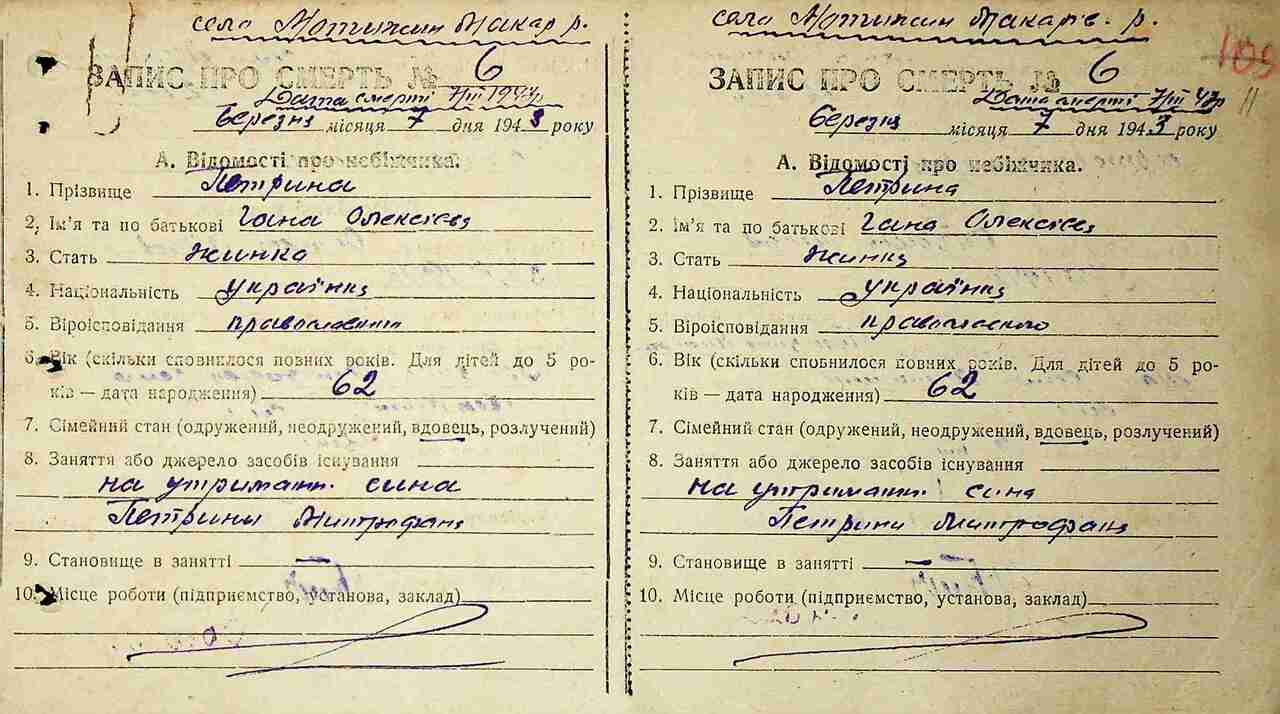 село Мотижин Макар р.
ЗАПИС ПРО СМЕРТЬ № 6
Дата смерті 7/III 1943р
березня місяця 7 дня 1943 року
А. Відомості про небіжчика.
1. Прізвище Петрина
2. Ім’я та по батькові Гана Олексієв
3. Стать жинка
4. Національність українка
5. Віроісповідання
6. Вік (скільки сповнилося повних років. Для дітей до 5 ро-
ків — дата народження) 62
7. Сімейний стан (одружений, неодружений, вдовець, розлучений)
8. Заняття або джерело засобів існування
на утриманн. сина
Петрини Митрофана
9. Становище в занятті —
10. Місце роботи (підприємство, установа, заклад)
село Мотижин Макарів. р.
105
11
ЗАПИС ПРО СМЕРТЬ № 6
Дата смерті 7/III 43р
березня місяця 7 дня 1943 року
А. Відомості про небіжчика.
1. Прізвище Петрина
2. Ім’я та по батькові Гана Олексієв
3. Стать жинка
4. Національність українка
5. Віроісповідання
6. Вік (скільки сповнилося повних років. Для дітей до 5 ро-
ків — дата народження) 62
7. Сімейний стан (одружений, неодружений, вдовець, розлучений)
8. Заняття або джерело засобів існування
на утриманн. сина
Петрини Митрофана
9. Становище в занятті —
10. Місце роботи (підприємство, установа, заклад)